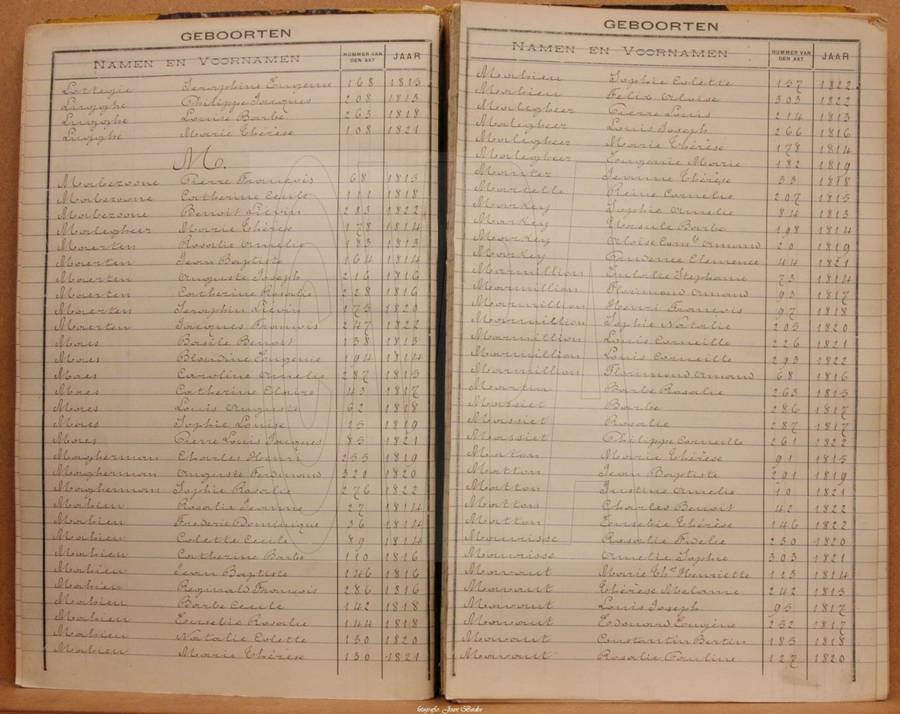 GEBOORTEN
NAMEN EN VOORNAMEN NUMMER VAN DEN AKT JAAR
Lottegie Seraphine Eugenie 168 1815
Lugghe Philippe Jacques 208 1813
Lugghe Louise Barbe 263 1818
Lugghe Marie Thérèse 108 1821
M.
Maberoone Pierre François 68 1815
Maberoone Catherine Cécile 111 1818
Maberoone Benoit Liévin 283 1822
Malegheer Marie Thérèse 178 1814
Maerten Rosalie Amélie 183 1813
Maerten Jean Baptiste 164 1814
Maerten Auguste Joseph 216 1816
Maerten Catherine Rosalie 228 1816
Maerten Seraphin Liévin 175 1820
Maerten Jacques François 247 1822
Maes Basile Benoit 138 1813
Maes Blondine Eugenie 194 1814
Maes Caroline Amelie 287 1815
Maes Catherine Claire 43 1817
Maes Louis Auguste 62 1818
Maes Sophie Louise 25 1819
Maes Pierre Louis Jacques 85 1821
Magherman Charles Henri 255 1819
Magherman Auguste Ferdinand 321 1820
Magherman Sophie Rosalie 276 1822
Mahieu Rosalie Jeannie 27 1814
Mahieu Frederic Dominique 36 1814
Mahieu Colette Cecile 89 1814
Mahieu Catherine Barbe 110 1816
Mahieu Jean Baptiste 146 1816
Mahieu Reginald François 286 1816
Mahieu Barbe Cecile 142 1818
Mahieu Eusebie Rosalie 144 1818
Mahieu Natalie Colette 150 1820
Mahieu Marie Thérèse 130 1821
GEBOORTEN
NAMEN EN VOORNAMEN NUMMER VAN DEN AKT JAAR
Mahieu Sophie Colette 157 1822
Mahieu Felix Aloise 303 1822
Malegheer Pierre Louis 214 1813
Malegheer Louis Joseph 266 1816
Malegheer Marie Thérèse 178 1814
Malegheer Eugenie Marie 182 1819
Jeanne Thérèse 33 1818
Martelle Reine Cornelie 207 1815
Markey Sophie Amelie 84 1813
Markey Ursule Barbe 198 1814
Markey Aloise Armand 20 1819
Markey Prudence Clemence 44 1821
Marmillion Eulalie Stephanie 73 1814
Marmillion Florimond Armand 93 1817
Marmillion Henri François 97 1818
Marmillion Sophie Natalie 205 1820
Marmillion Louis Corneille 226 1821
Marmillion Louis Corneille 293 1822
Marmillion Florimond Armand 68 1816
Martin Barbe Rosalie 263 1815
Massiet Barbe 286 1817
Massiet Rosalie 287 1817
Massiet Philippe Corneille 261 1822
Marie Thérèse 91 1815
Matton Jean Baptiste 291 1819
Matton Justine Amelie 10 1821
Matton Charles Benoit 42 1822
Matton Eusebie Thérèse 146 1822
Maurisse Rosalie Fidelie 230 1820
Maurisse Amelie Sophie 303 1821
Mavaut Marie Th. Henriette 113 1814
Mavaut Thérèse Melanie 242 1815
Mavaut Louis Joseph 95 1817
Mavaut Edouard Eugène 252 1817
Mavaut Constantin Bertin 185 1818
Mavaut Rosalie Pauline 127 1820